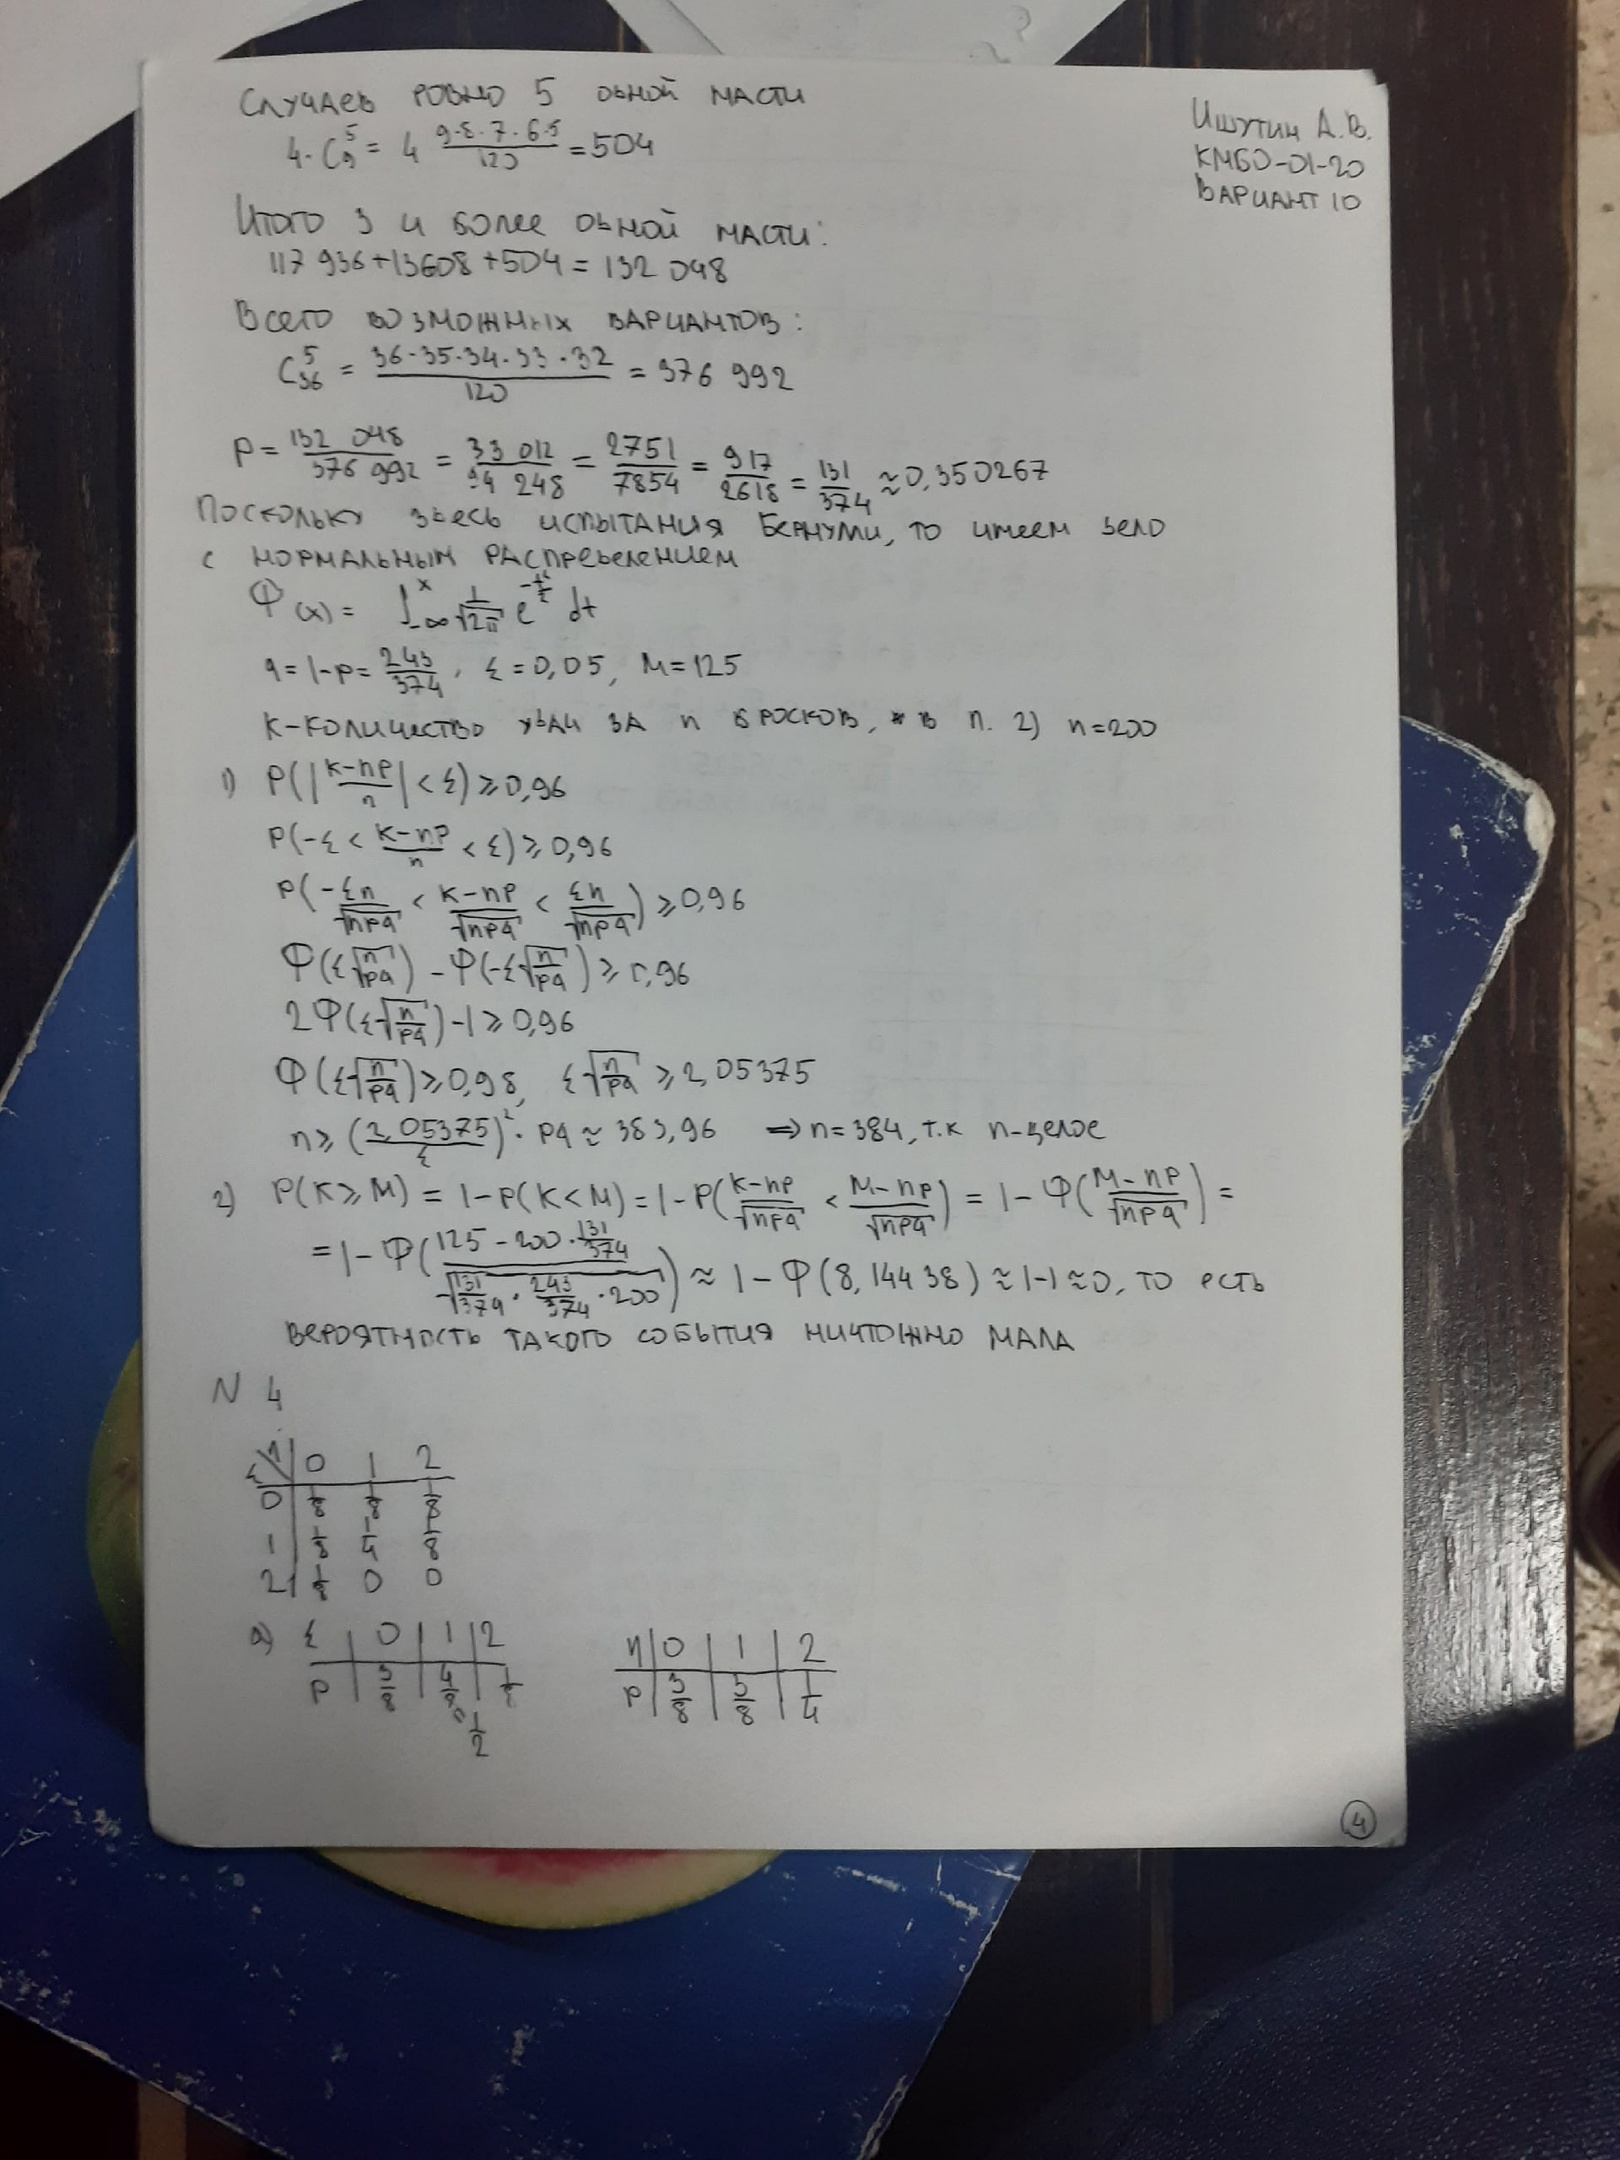 Случаев ровно 5 одной масти
4·C₉⁵ = 4 (9·8·7·6·5)/120 = 504
Ишутин А.В.
КМБО-01-20
Вариант 10
Итого 3 и более одной масти:
117 936+13608+504 = 132 048
Всего возможных вариантов:
C₃₆⁵ = (36·35·34·33·32)/120 = 376 992
P = 132 048/376 992 = 33 012/94 248 = 2751/7854 = 917/2618 = 131/374 ≈ 0,350267
Поскольку здесь испытания Бернулли, то имеем дело
с нормальным распределением
Φ(x) = ∫_{-∞}^{x} 1/√(2π) e^{-t²/2} dt
q = 1-p = 243/374, ξ = 0,05, M = 125
K-количество удач за n бросков, в п. 2) n=200
1) P(|(K-np)/n| < ξ) ≥ 0,96
P(-ξ < (K-np)/n < ξ) ≥ 0,96
P(-ξn/√(npq) < (K-np)/√(npq) < ξn/√(npq)) ≥ 0,96
Φ(ξ√(n/pq)) - Φ(-ξ√(n/pq)) ≥ 0,96
2Φ(ξ√(n/pq)) - 1 ≥ 0,96
Φ(ξ√(n/pq)) ≥ 0,98, ξ√(n/pq) ≥ 2,05375
n ≥ (2,05375/ξ)² · pq ≈ 383,96 ⇒ n = 384, т.к n-целое
2) P(K ≥ M) = 1-P(K < M) = 1-P((K-np)/√(npq) < (M-np)/√(npq)) = 1-Φ((M-np)/√(npq)) =
= 1-Φ((125-200·131/374)/√(131/374 · 243/374 · 200)) ≈ 1-Φ(8,14438) ≈ 1-1 ≈ 0, то есть
вероятность такого события ничтожно мала
N 4
ξ\η | 0 1 2
0 | 1/8 1/8 1/8
1 | 1/8 1/4 1/8
2 | 1/8 0 0
а) ξ | 0 | 1 | 2
P | 3/8 | 4/8=1/2 | 1/8
η | 0 | 1 | 2
P | 3/8 | 3/8 | 1/4
4